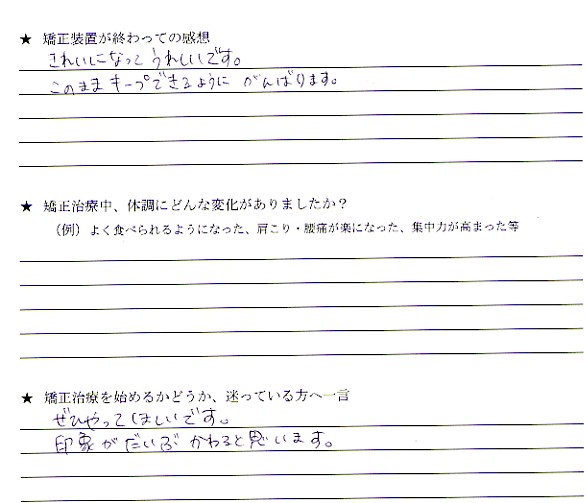 ★ 矯正装置が終わっての感想
きれいになって うれしいです。
このまま キープできるように がんばります。
★ 矯正治療中、体調にどんな変化がありましたか？
（例）よく食べられるようになった、肩こり・腰痛が楽になった、集中力が高まった等
★ 矯正治療を始めるかどうか、迷っている方へ一言
ぜひやってほしいです。
印象が だいぶ かわると思います。